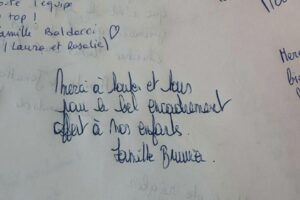 l'équipe
top !
famille Baldoroi ♡
(Laura et Rosalie)
Merci à toutes et tous
pour le bel encadrement
offert à nos enfants.
famille Brunna.
Merci